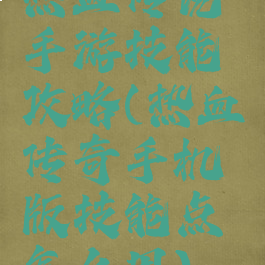 热血传说
手游技能
攻略(热血
传奇手机
版技能点